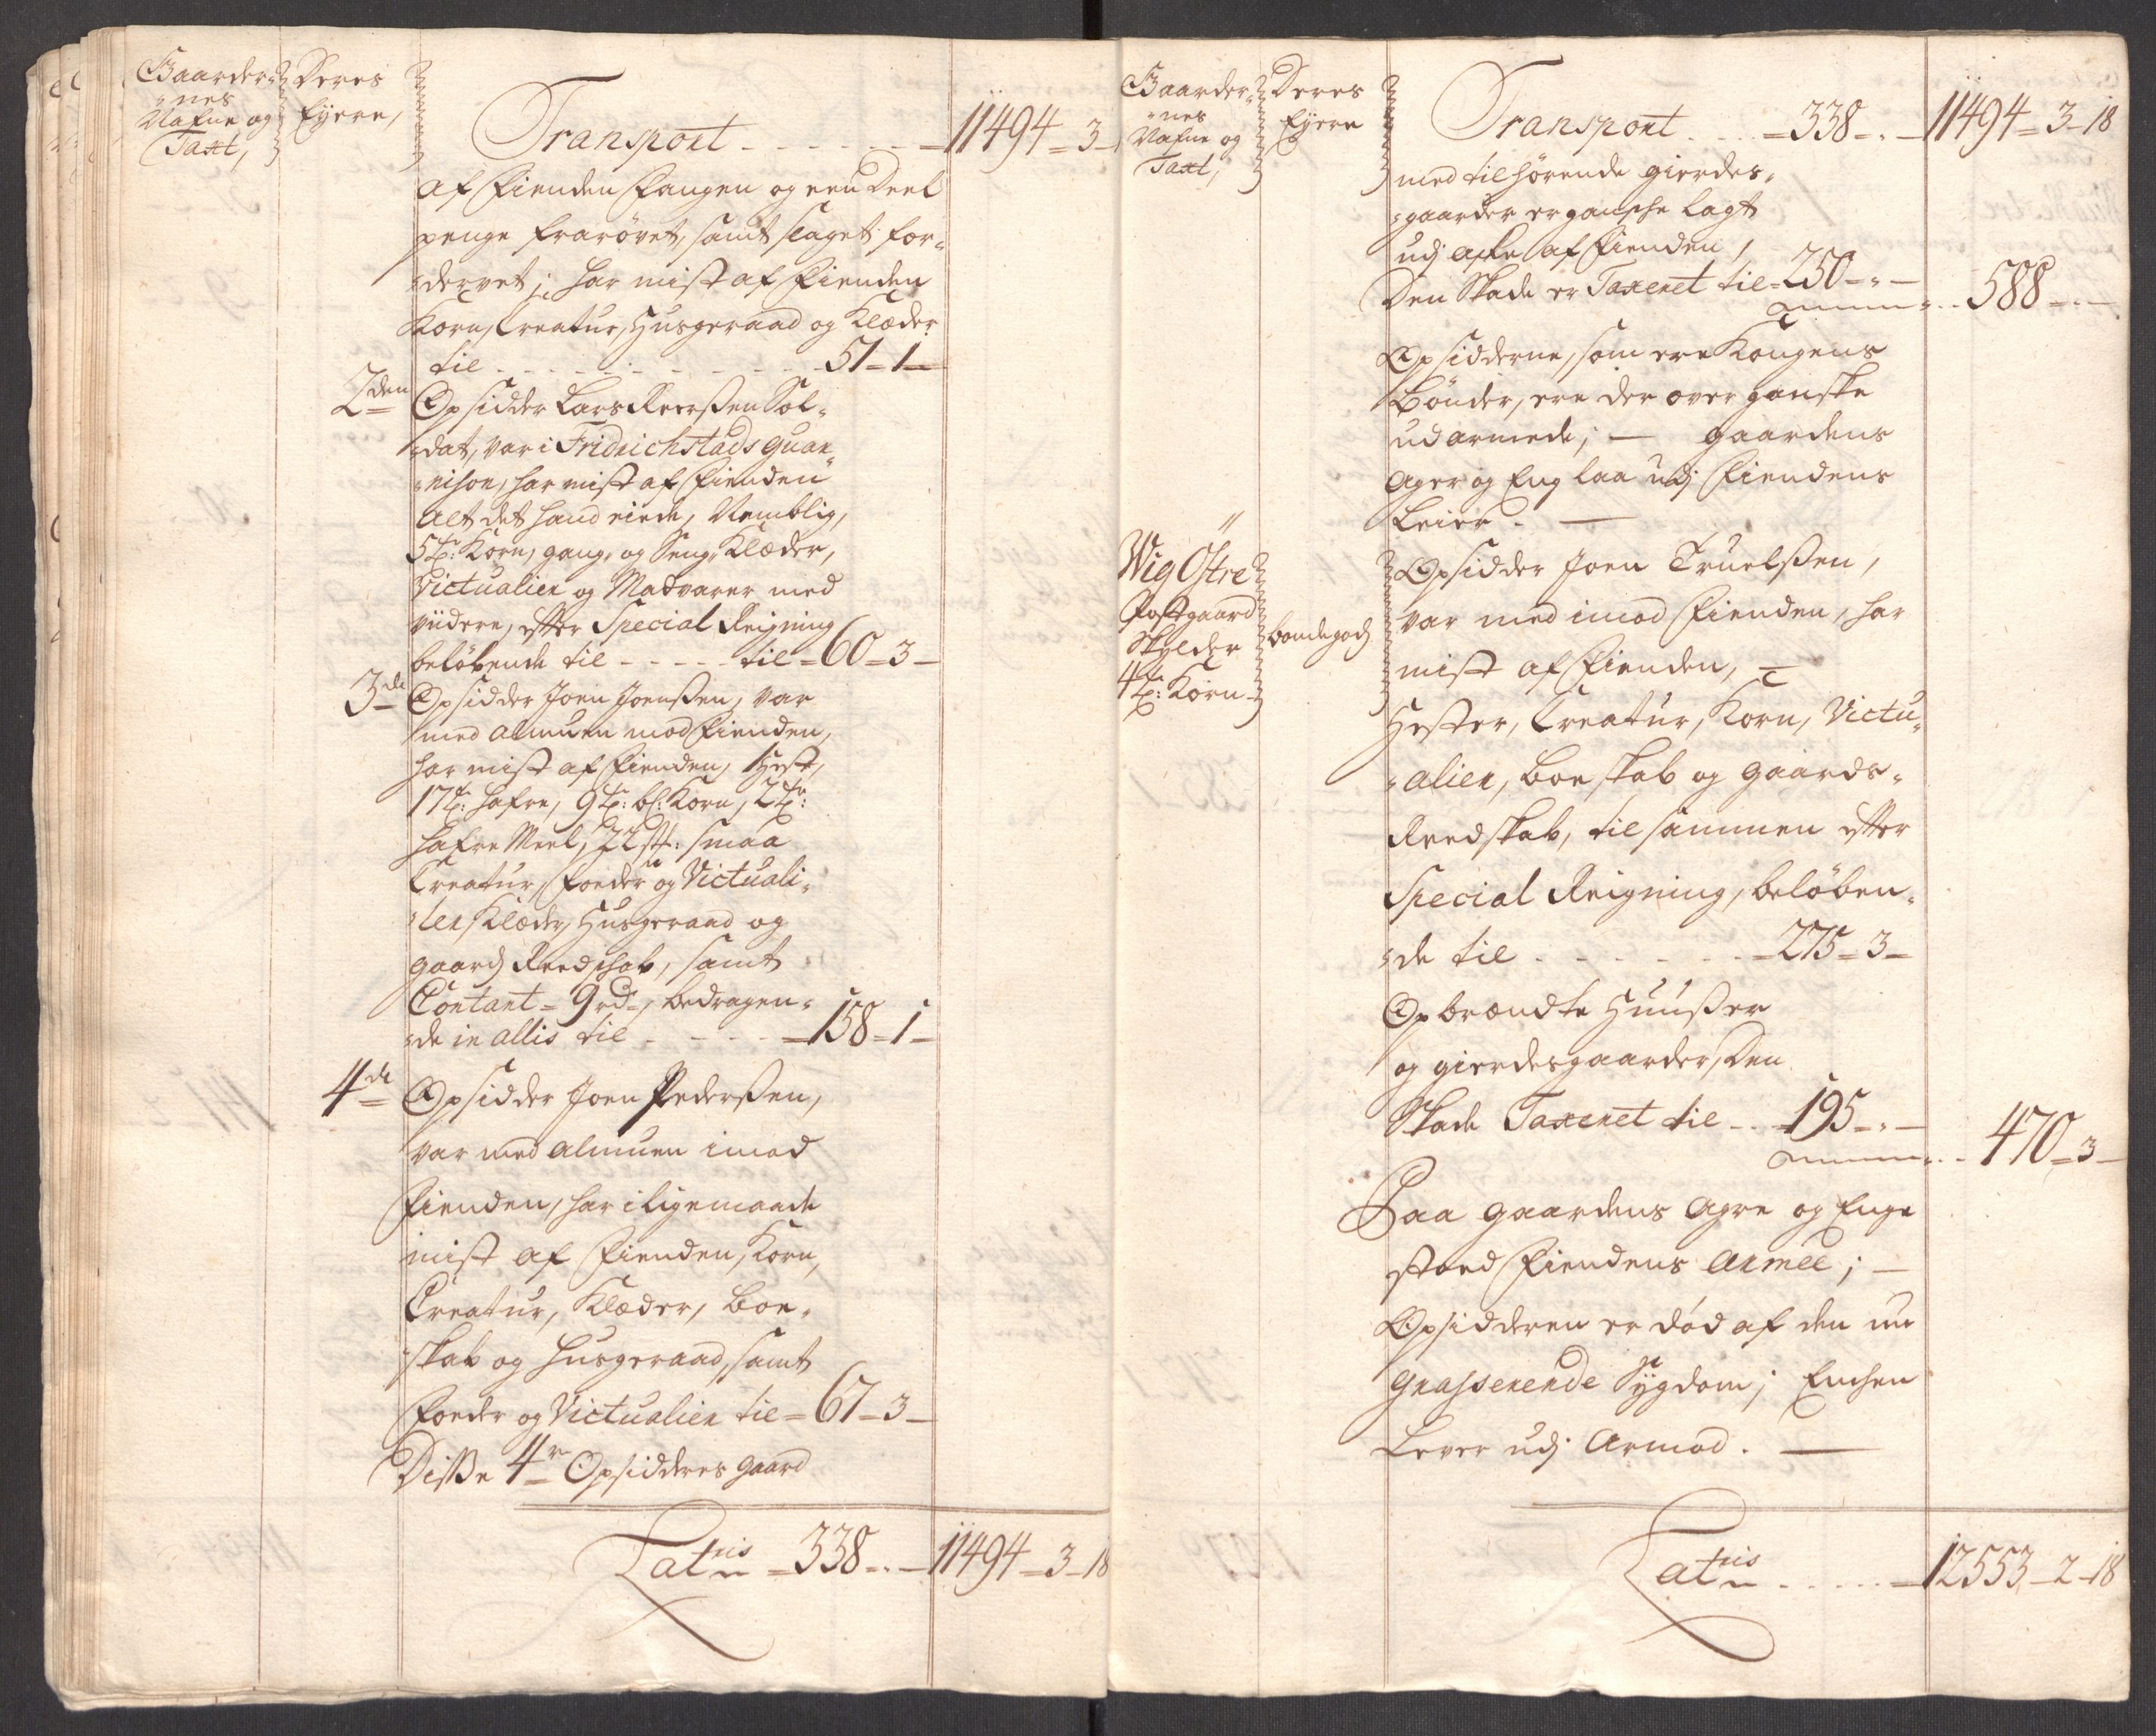 Gaarder-
nes
Nafne og
Taxt,
Deres
Eyere,
Transport - - - - - - 11494 - 3 -
af Fienden Fangen og een Deel
penge frarøvet, samt slaget for-
dervet; har mist af Fienden
Korn, Creatur, Husgeraad og Klæder
til - - - - - - - - - 51 - 1 -
2den
Opsidder Lars Reerssen Sol-
dat, var i Fridrichstads guar-
nison, har mist af Fienden
alt det hand eiede, Nemblig,
5 tr: Korn, gang, og Seng-Klæder,
Victualier og Madvarer med
viidere, efter Special Reigning
beløbende til - - - - til = 60 = 3 -
3de
Opsidder Joen Joenssen, var
med almuen mod Fienden,
har mist af Fienden, 1 Hest,
17 tr: hafre, 9 tr: bl: Korn, 2 tr:
hafre Meel, 22 st: smaa
Creatur, Foeder og Victuali-
er, Klæder, Husgeraad og
gaards Reedschab, samt
Contant = 9 rd =, bedragen-
de in allis til - - - - = 158 = 1 -
4de
Opsidder Joen Pederssen,
var med almuen imod
Fienden, har i ligemaade
mist af Fienden, Korn,
Creatur, Klæder, boe-
skab og husgeraad, samt
Foeder og Victualier til = 67 = 3 -
Disse 4re Opsidderes gaard
Latris = 338 - " - 11494 - 3 - 18
Gaarder-
nes
Nafne og
Taxt,
Deres
Eyere
Transport - - - = 338 - " - 11494 = 3 - 18
med tilhørende gierdes-
gaarder er ganske lagt
udj aske af Fienden,
Den Skade er Taxeret til = 250 - " -
588 - " -
Opsidderne, som ere Kongens
Bønder, ere der over ganske
udarmede; - gaardens
ager og Eng laa udj Fiendens
Leier. -
Wig Østre
Postgaard
Skylder
4 tr: Korn
bondegods
Opsidder Joen Truelssen,
var med imod Fienden, har
mist af Fienden, =
Hester, Creatur, Korn, Victu-
alier, boeskab og gaards-
Reedskab, tilsammen efter
Special Reigning, beløben-
de til - - - - - - = 275 = 3 -
Opbrændte Huusser
og gierdesgaarder, Den
Skade Taxeret til - - 195 - " -
470 = 3 -
Paa gaardens agre og Enge
stoed Fiendens Armee; -
Opsidderen er død af den nu
Grasserende Sygdom; Enchen
Lever udj Armod. -
Latris - - - - - 12553 - 2 - 18